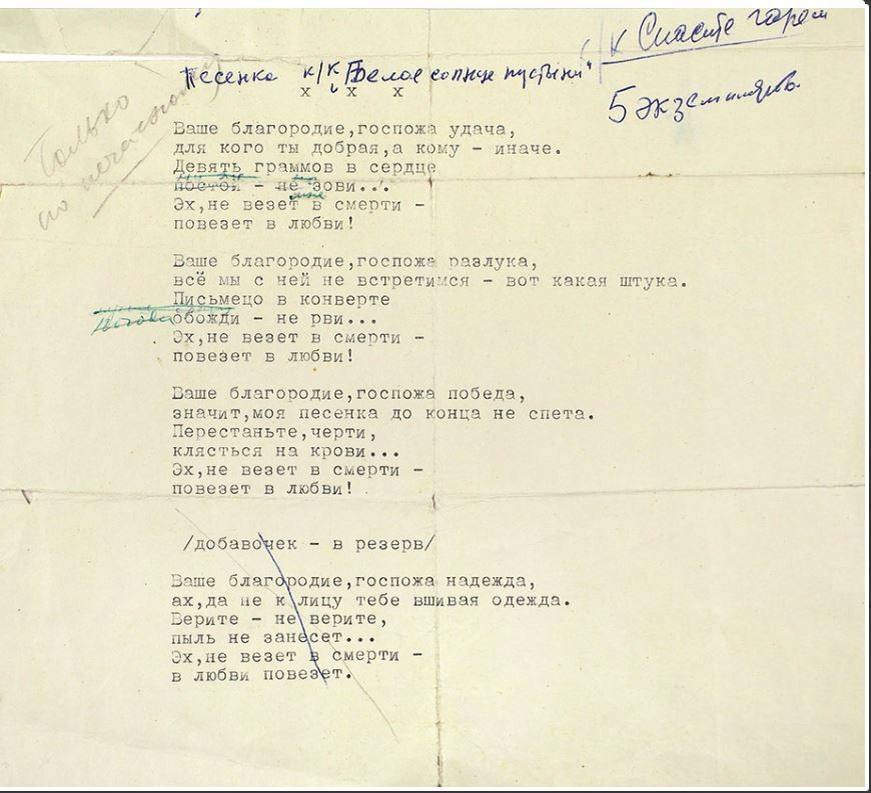 к/к Спасите гарем
Песенка к/к "Белое солнце пустыни"
х х х
5 экземпляров.
Только
по печатному
Ваше благородие,госпожа удача,
для кого ты добрая,а кому - иначе.
Девять граммов в сердце
постой - не зови...
Эх,не везет в смерти -
повезет в любви!
Ваше благородие,госпожа разлука,
всё мы с ней не встретимся - вот какая штука.
Письмецо в конверте
обожди - не рви...
Эх,не везет в смерти -
повезет в любви!
Ваше благородие,госпожа победа,
значит,моя песенка до конца не спета.
Перестаньте,черти,
клясться на крови...
Эх,не везет в смерти -
повезет в любви!
/добавочек - в резерв/
Ваше благородие,госпожа надежда,
ах,да не к лицу тебе вшивая одежда.
Верите - не верите,
пыль не занесет...
Эх,не везет в смерти -
в любви повезет.